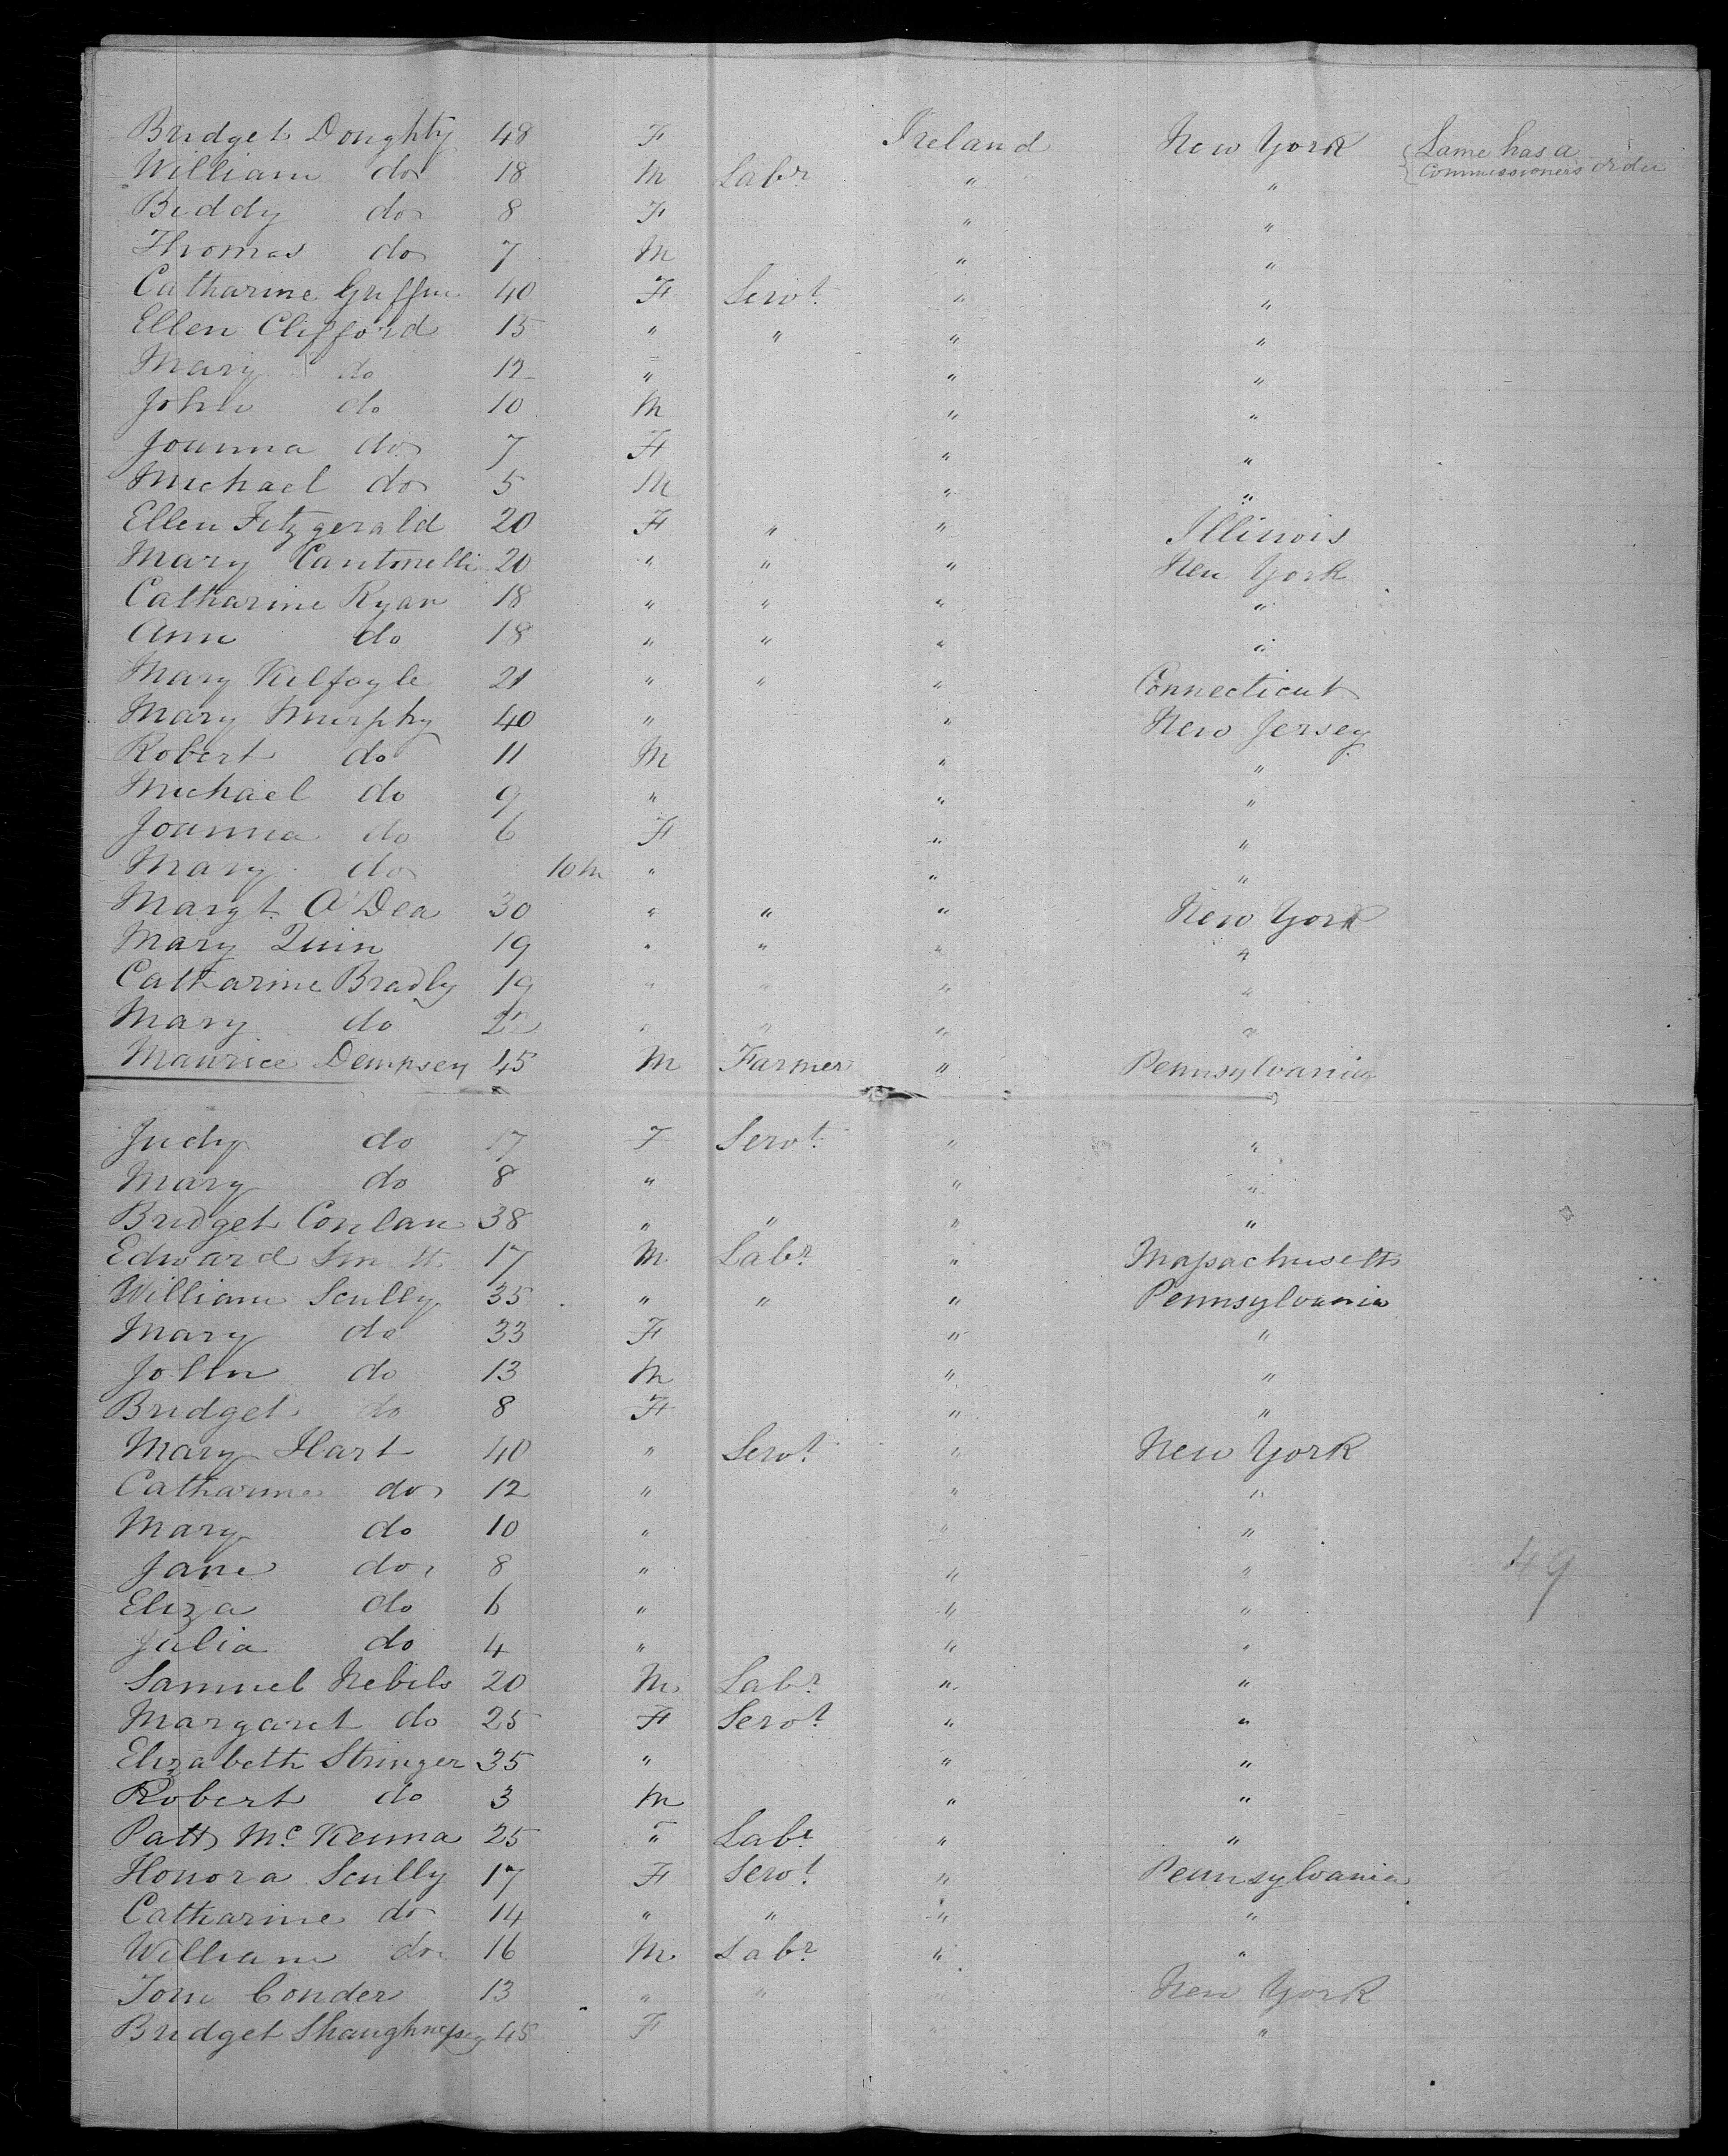 Bridget Doughty 48 F Ireland New York { Lame has a Commissioners order
William do 18 M Labr " "
Biddy do 8 F " "
Thomas do 7 M " "
Catharine Griffin 40 F Servt " "
Ellen Clifford 15 " " " "
Mary do 12 " " "
John do 10 M " "
Joanna do 7 F " "
Michael do 5 M " "
Ellen Fitzgerald 20 F " " Illinois
Mary 20 " " " New York
Catharine Ryan 18 " " " "
Ann do 18 " " " "
Mary Kilfoyle 21 " " " Connecticut
Mary Murphy 40 " " New Jersey
Robert do 11 M " "
Michael do 9 " " "
Joanna do 6 F " "
Mary do 10 m " " "
Margt. O'Dea 30 " " " New York
Mary Quin 19 " " " "
Catharine Bradly 19 " " " "
Mary do 22 " " " "
Maurice Dempsey 45 M Farmer " Pennsylvania
Judy do 17 F Servt " "
Mary do 8 " " "
Bridget Conlan 38 " " " "
Edward Smith 17 M Labr " Massachusetts
William Scully 35 " " " Pennsylvania
Mary do 33 F " "
John do 13 M " "
Bridget do 8 F " "
Mary Hart 40 " Servt " New York
Catharine do 12 " " "
Mary do 10 " " "
Jane do 8 " " "
Eliza do 6 " " "
Julia do 4 " " "
Samuel Nebils 20 M Labr " "
Margaret do 25 F Servt " "
Elizabeth Stringer 35 " " "
Robert do 3 M " "
Patt Mc Kenna 25 " Labr " "
Honora Scully 17 F Servt " Pennsylvania
Catharine do 14 " " " "
William do 16 M Labr " "
Tom Conder 13 " " " New York
Bridget Shaughnessy 45 F " "
49